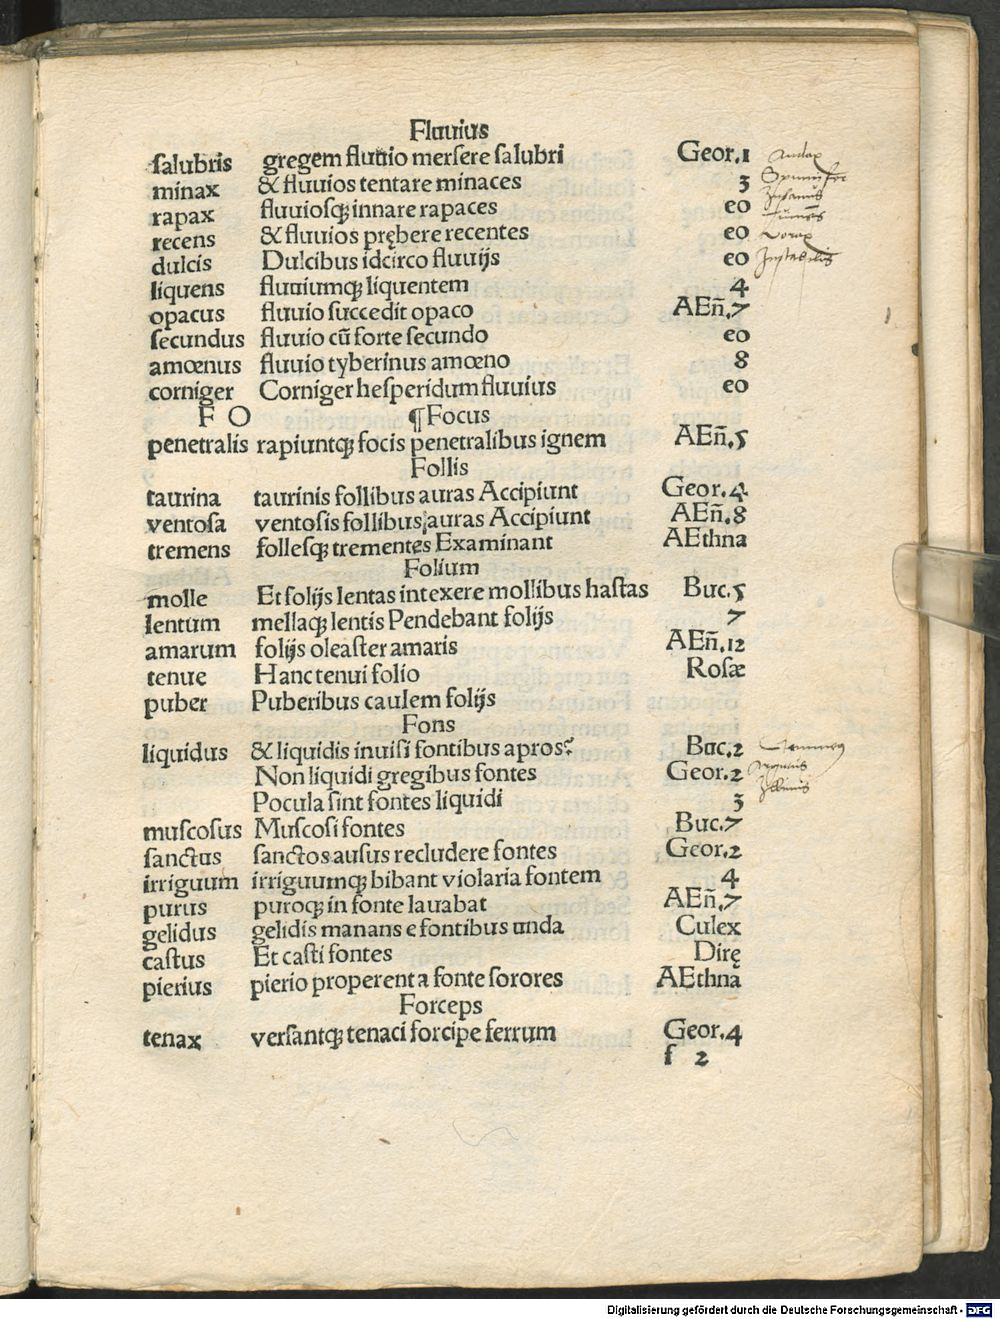 Fluuius
salubris gregem fluuio mersere salubri Geor.1
minax & fluuios tentare minaces 3
rapax fluuiosqꝫ innare rapaces eo
recens & fluuios prębere recentes eo
dulcis Dulcibus idcirco fluuijs eo
liquens fluuiumqꝫ liquentem 4
opacus fluuio succedit opaco AEn̄.7
secundus fluuio cū forte secundo eo
amœnus fluuio tyberinus amœno 8
corniger Corniger hesperidum fluuius eo
F O ¶Focus
penetralis rapiuntqꝫ focis penetralibus ignem AEn̄.5
Follis
taurina taurinis follibus auras Accipiunt Geor.4
ventosa ventosis follibus auras Accipiunt AEn̄.8
tremens follesqꝫ trementes Examinant AEthna
Folium
molle Et folijs lentas intexere mollibus hastas Buc.5
lentum mellaqꝫ lentis Pendebant folijs 7
amarum folijs oleaster amaris AEn̄.12
tenue Hanc tenui folio Rosæ
puber Puberibus caulem folijs
Fons
liquidus & liquidis inuisi fontibus apros? Buc.2
Non liquidi gregibus fontes Geor.2
Pocula sint fontes liquidi 3
muscosus Muscosi fontes Buc.7
sanctus sanctos ausus recludere fontes Geor.2
irriguum irriguumqꝫ bibant violaria fontem 4
purus puroqꝫ in fonte lauabat AEn̄.7
gelidus gelidis manans e fontibus unda Culex
castus Et casti fontes Dirę
pierius pierio properent a fonte sorores AEthna
Forceps
tenax versantqꝫ tenaci forcipe ferrum Geor.4
f 2
Audax
Spumifer
Insanus
Vorax
Instabilis
Digitalisierung gefördert durch die Deutsche Forschungsgemeinschaft - DFG